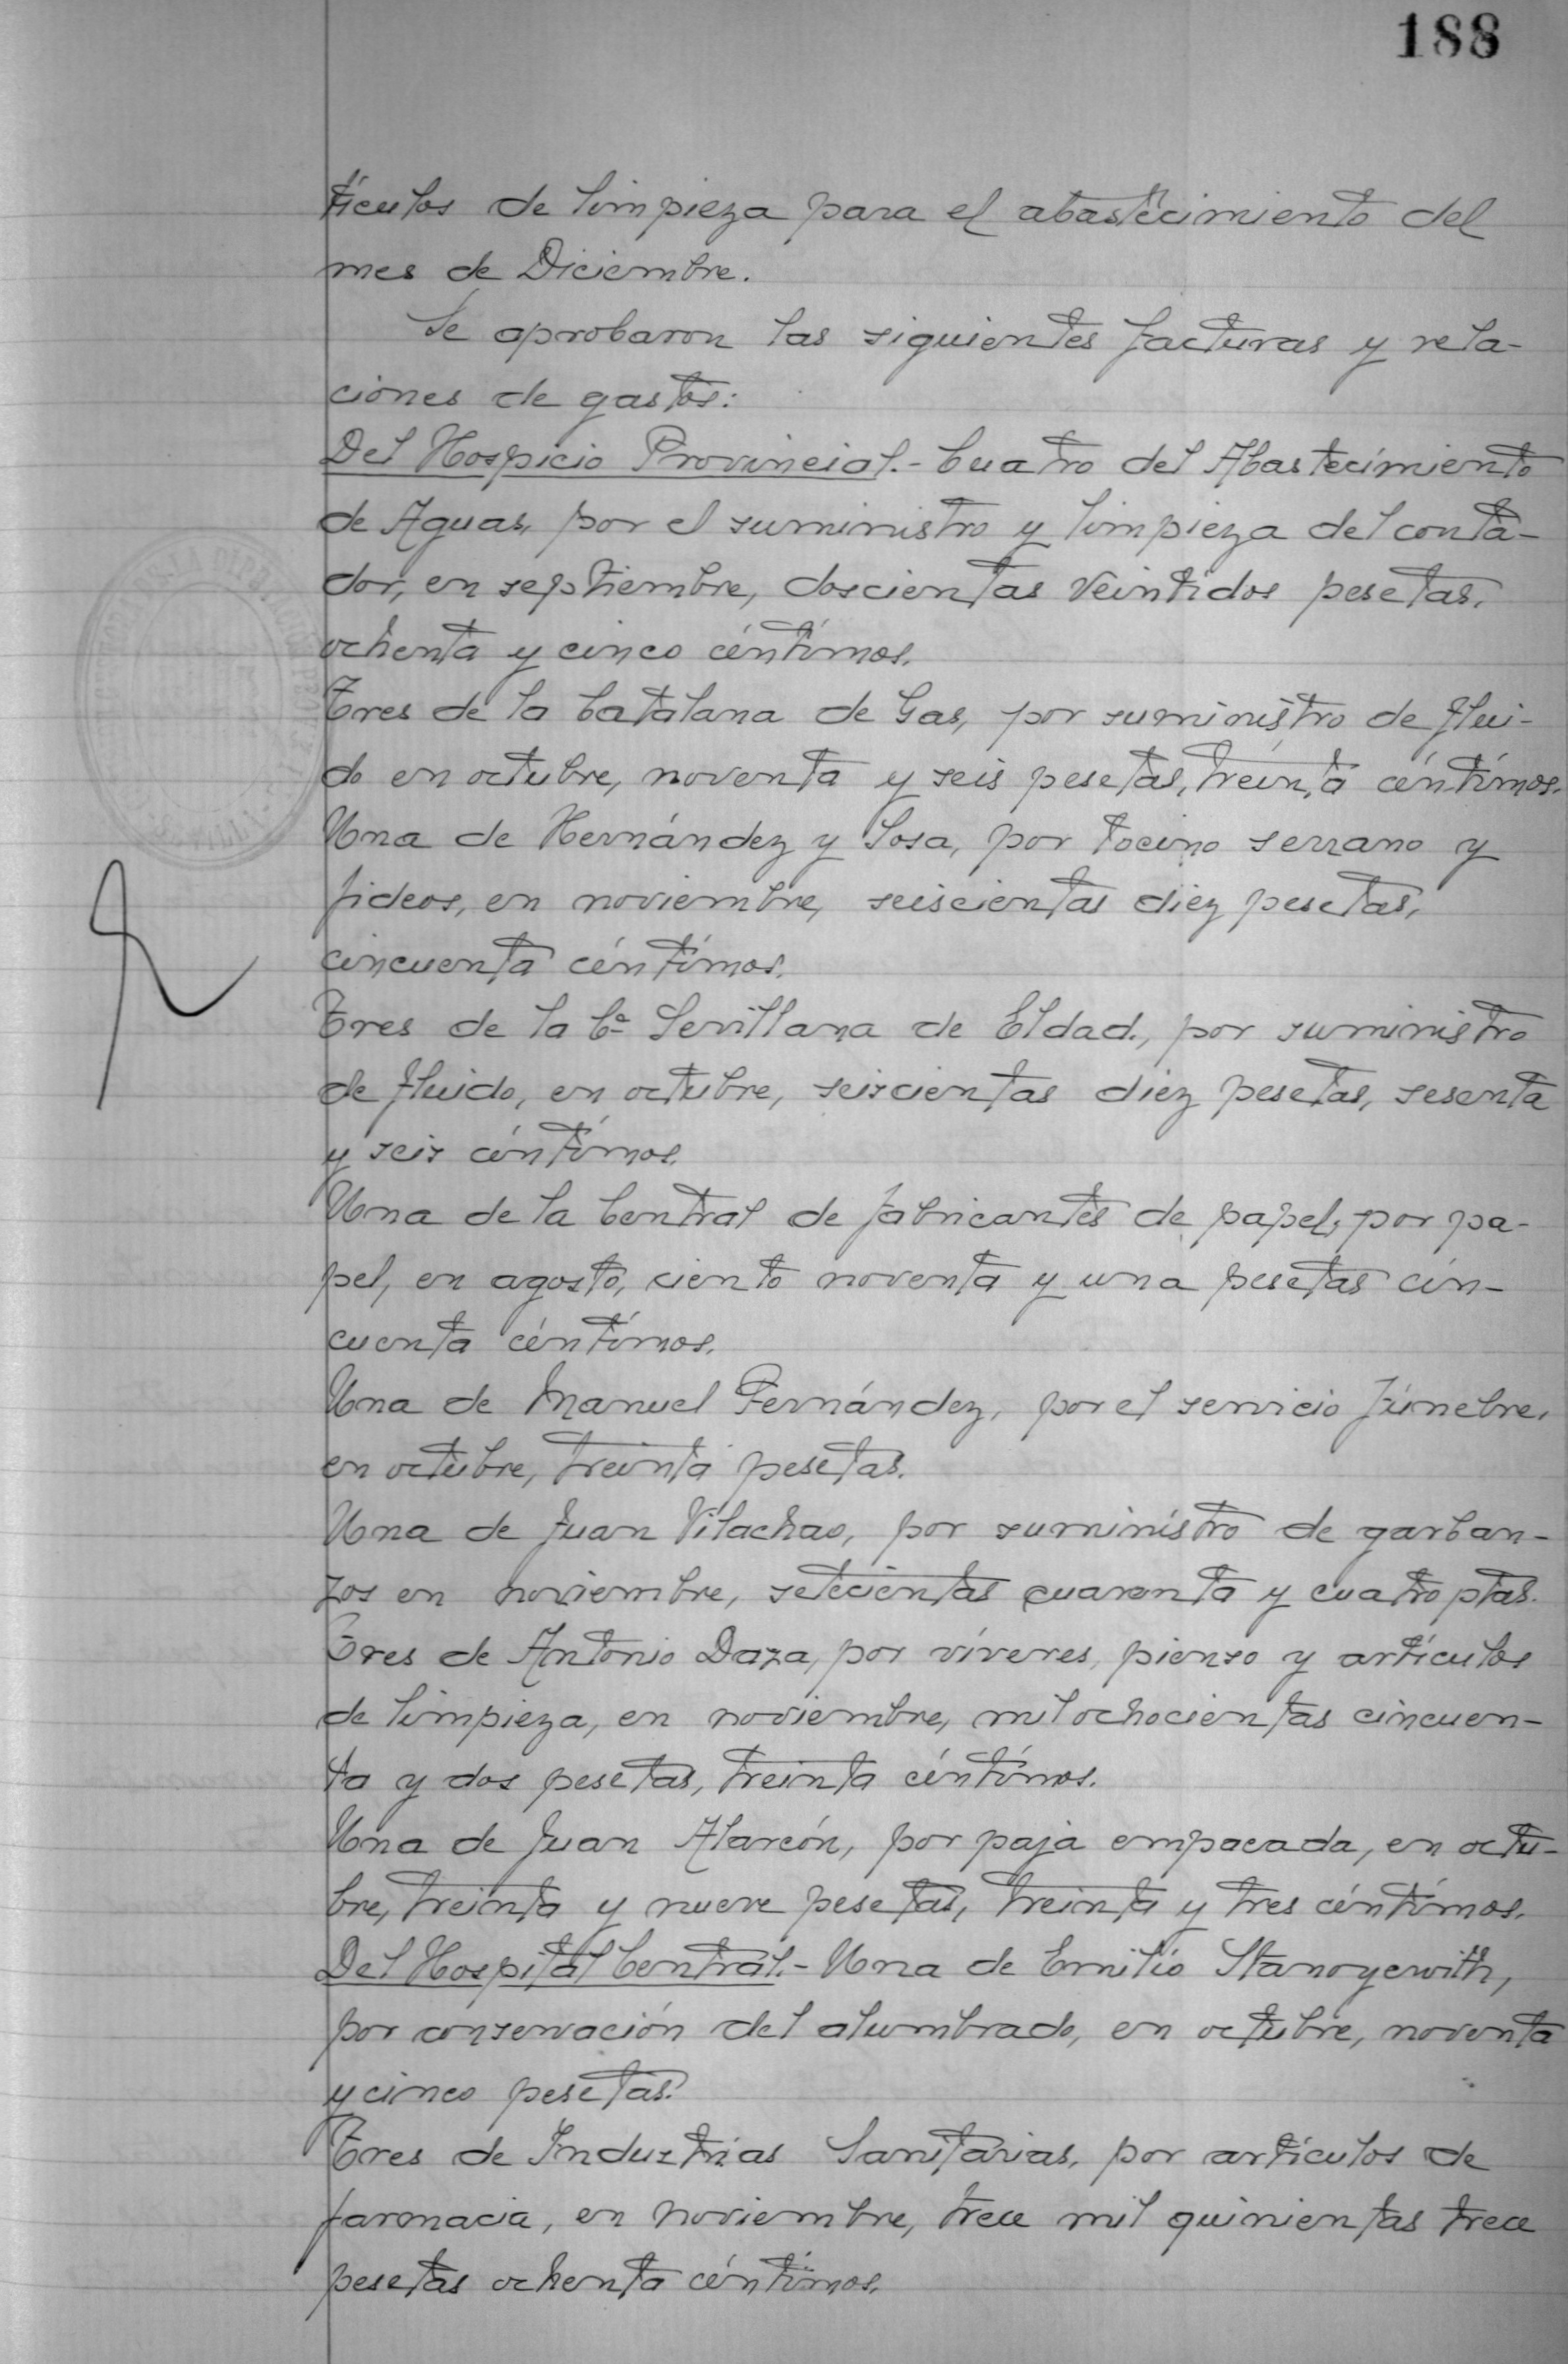 188
tículos de limpieza para el abastecimiento del
mes de Diciembre.
Se aprobaron las siguientes facturas y rela-
ciones de gastos:
Del Hospicio Provincial.- Cuatro del Abastecimiento
de Aguas, por el suministro y limpieza del conta-
dor, en septiembre, doscientas veintidos pesetas,
ochenta y cinco céntimos.
Tres de la Catalana de Gas, por suministro de flui-
do en octubre, noventa y seis pesetas, treinta céntimos.
Una de Hernández y Sosa, por tocino serrano y
fideos, en noviembre, seiscientas diez pesetas,
cincuenta céntimos.
Tres de la Cª Sevillana de Eldad., por suministro
de fluido, en octubre, seiscientas diez pesetas, sesenta
y seis céntimos.
Una de la Central de fabricantes de papel, por pa-
pel, en agosto, ciento noventa y una pesetas cin-
cuenta céntimos.
Una de Manuel Fernández, por el servicio fúnebre,
en octubre, treinta pesetas.
Una de Juan Vilachao, por suministro de garban-
zos en noviembre, setecientas cuarenta y cuatro ptas.
Tres de Antonio Daza, por víveres, pienso y artículos
de limpieza, en noviembre, mil ochocientas cincuen-
ta y dos pesetas, treinta céntimos.
Una de Juan Alarcón, por paja empacada, en octu-
bre, treinta y nueve pesetas, treinta y tres céntimos.
Del Hospital Central.- Una de Emilio Stanoyewith,
por conservación del alumbrado, en octubre, noventa
y cinco pesetas.
Tres de Industrias Sanitarias, por artículos de
farmacia, en noviembre, trece mil quinientas trece
pesetas ochenta céntimos.